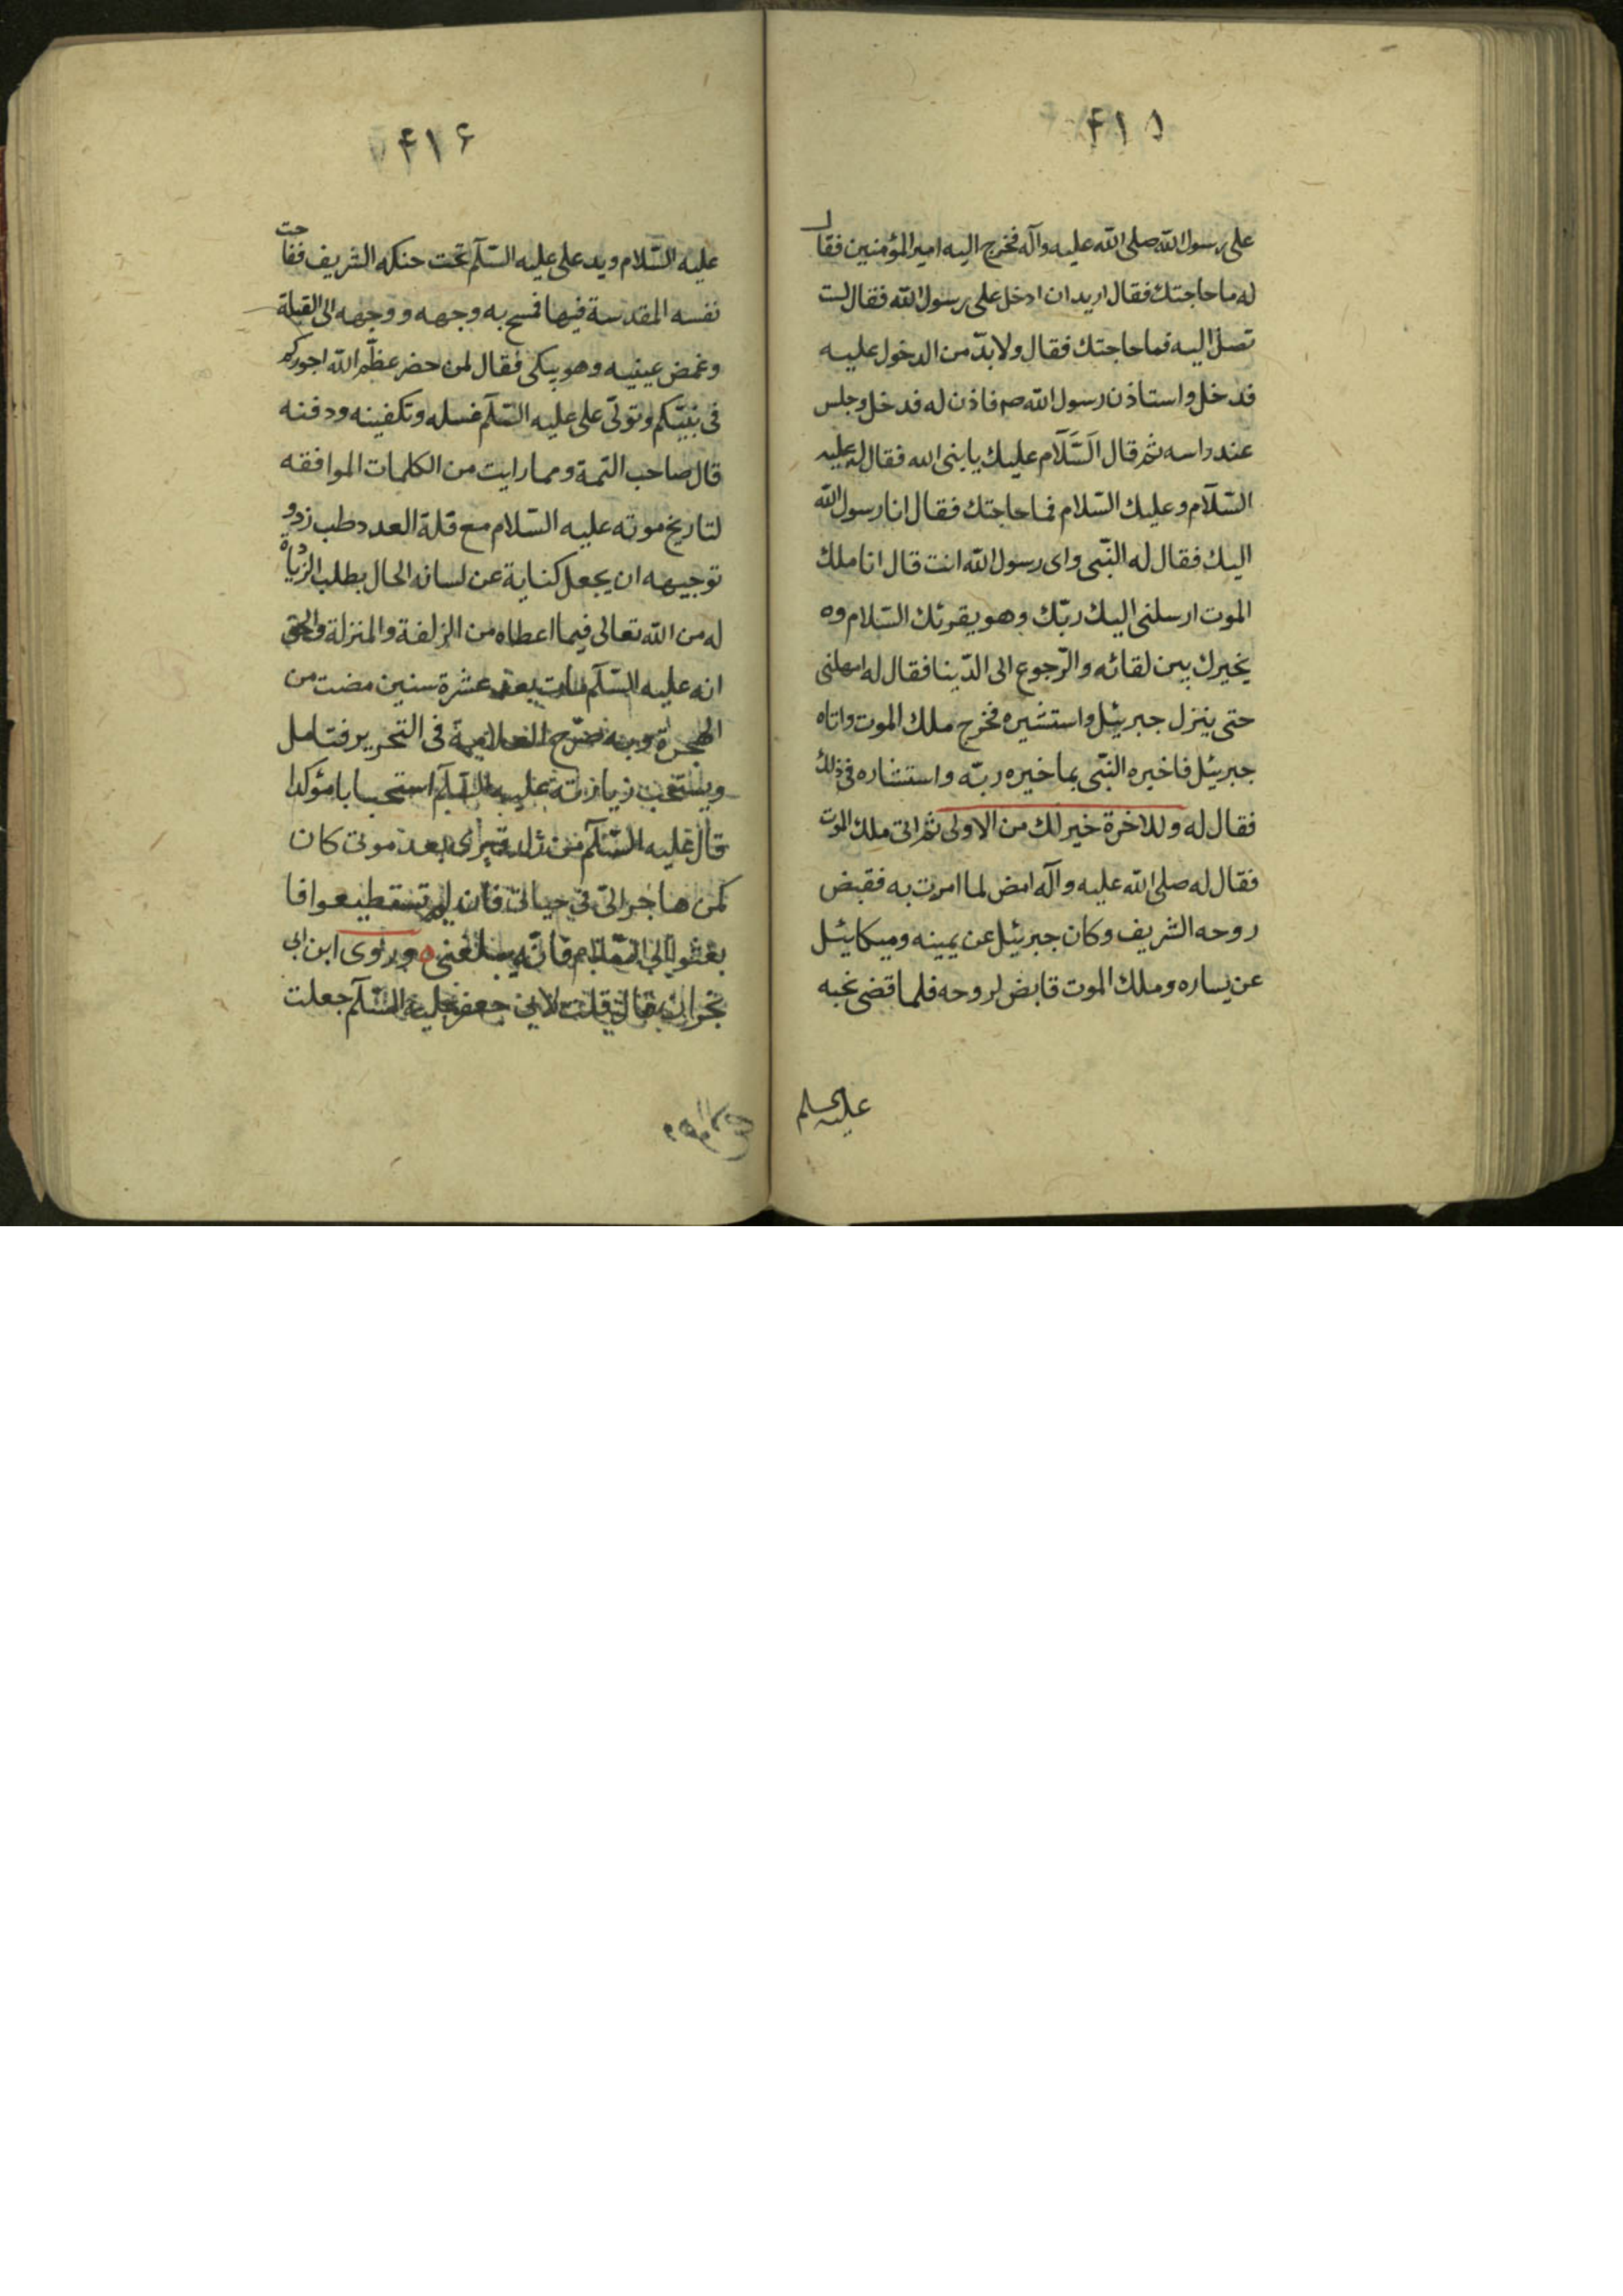 ۴۱۵
على رسول الله صلى الله عليه وآله فخرج اليه امير المؤمنين فقال
له ما حاجتك فقال اريد ان ادخل على رسول الله فقال لست
تصل اليه فما حاجتك فقال ولا بدّ من الدخول عليه
فدخل واستاذن رسول الله صم فاذن له فدخل وجلس
عند راسه ثم قال اَلسَّلَام عليك يا بنى الله فقال له عليه
السّلام وعليك السّلام فما حاجتك فقال انا رسول الله
اليك فقال له النّبى واى رسول الله انت قال انا ملك
الموت ارسلنى اليك ربّك وهو يقرئك السّلام وه
يخيرك بين لقائه والرّجوع الى الدّينا فقال له امهلنى
حتى ينزل جبرئيل واستشيره فخرج ملك الموت واتاه
جبرئيل فاخبره النبّى بما خيره ربّه واستشاره فى ذلك
فقال له وللاخرة خير لك من الاولى ثم اتى ملك الموت
فقال له صلى الله عليه وآله امض لما امرت به فقبض
روحه الشريف وكان جبرئيل عن يمينه وميكائيل
عن يساره وملك الموت قابض لروحه فلما قضى نحبه
۴۱۶
عليه السّلام ويد على عليه السّلم تحت حنكه الشريف ففاحت
نفسه المقدسة فيها فمسح به وجهه و وجهه الى القبلة
وغمض عينيه وهو يبكى فقال لمن حضر عظّم الله اجوركم
فى نبيّكم وتولّى على عليه السّلم غسله وتكفينه ودفنه
قال صاحب التمة ومما رايت من الكلمات الموافقه
لتاريخ موته عليه السّلام مع قلة العدد طب زدو
توجيهه ان يجعل كناية عن لسانه الحال بطلب الزيادة
له من الله تعالى فيما اعطاه من الزلفة والمنزلة والحق
انه عليه السّلم مات بعد عشرة سنين مضت من
الهجرة وبه صرّح العلامة فى التحرير فتامل
ويستحب زيارته عليه السّلم استحبابا مؤكدا
قال عليه السّلم من زار قبرى بعد موتى كان
كمن هاجر الىّ فى حياتى فان لم تستطيعوا فا
بعثوا الى السّلام فانّه يبلغنى وروى ابن ابى
نجران قال قلت لابى جعفر عليه السّلم جعلت